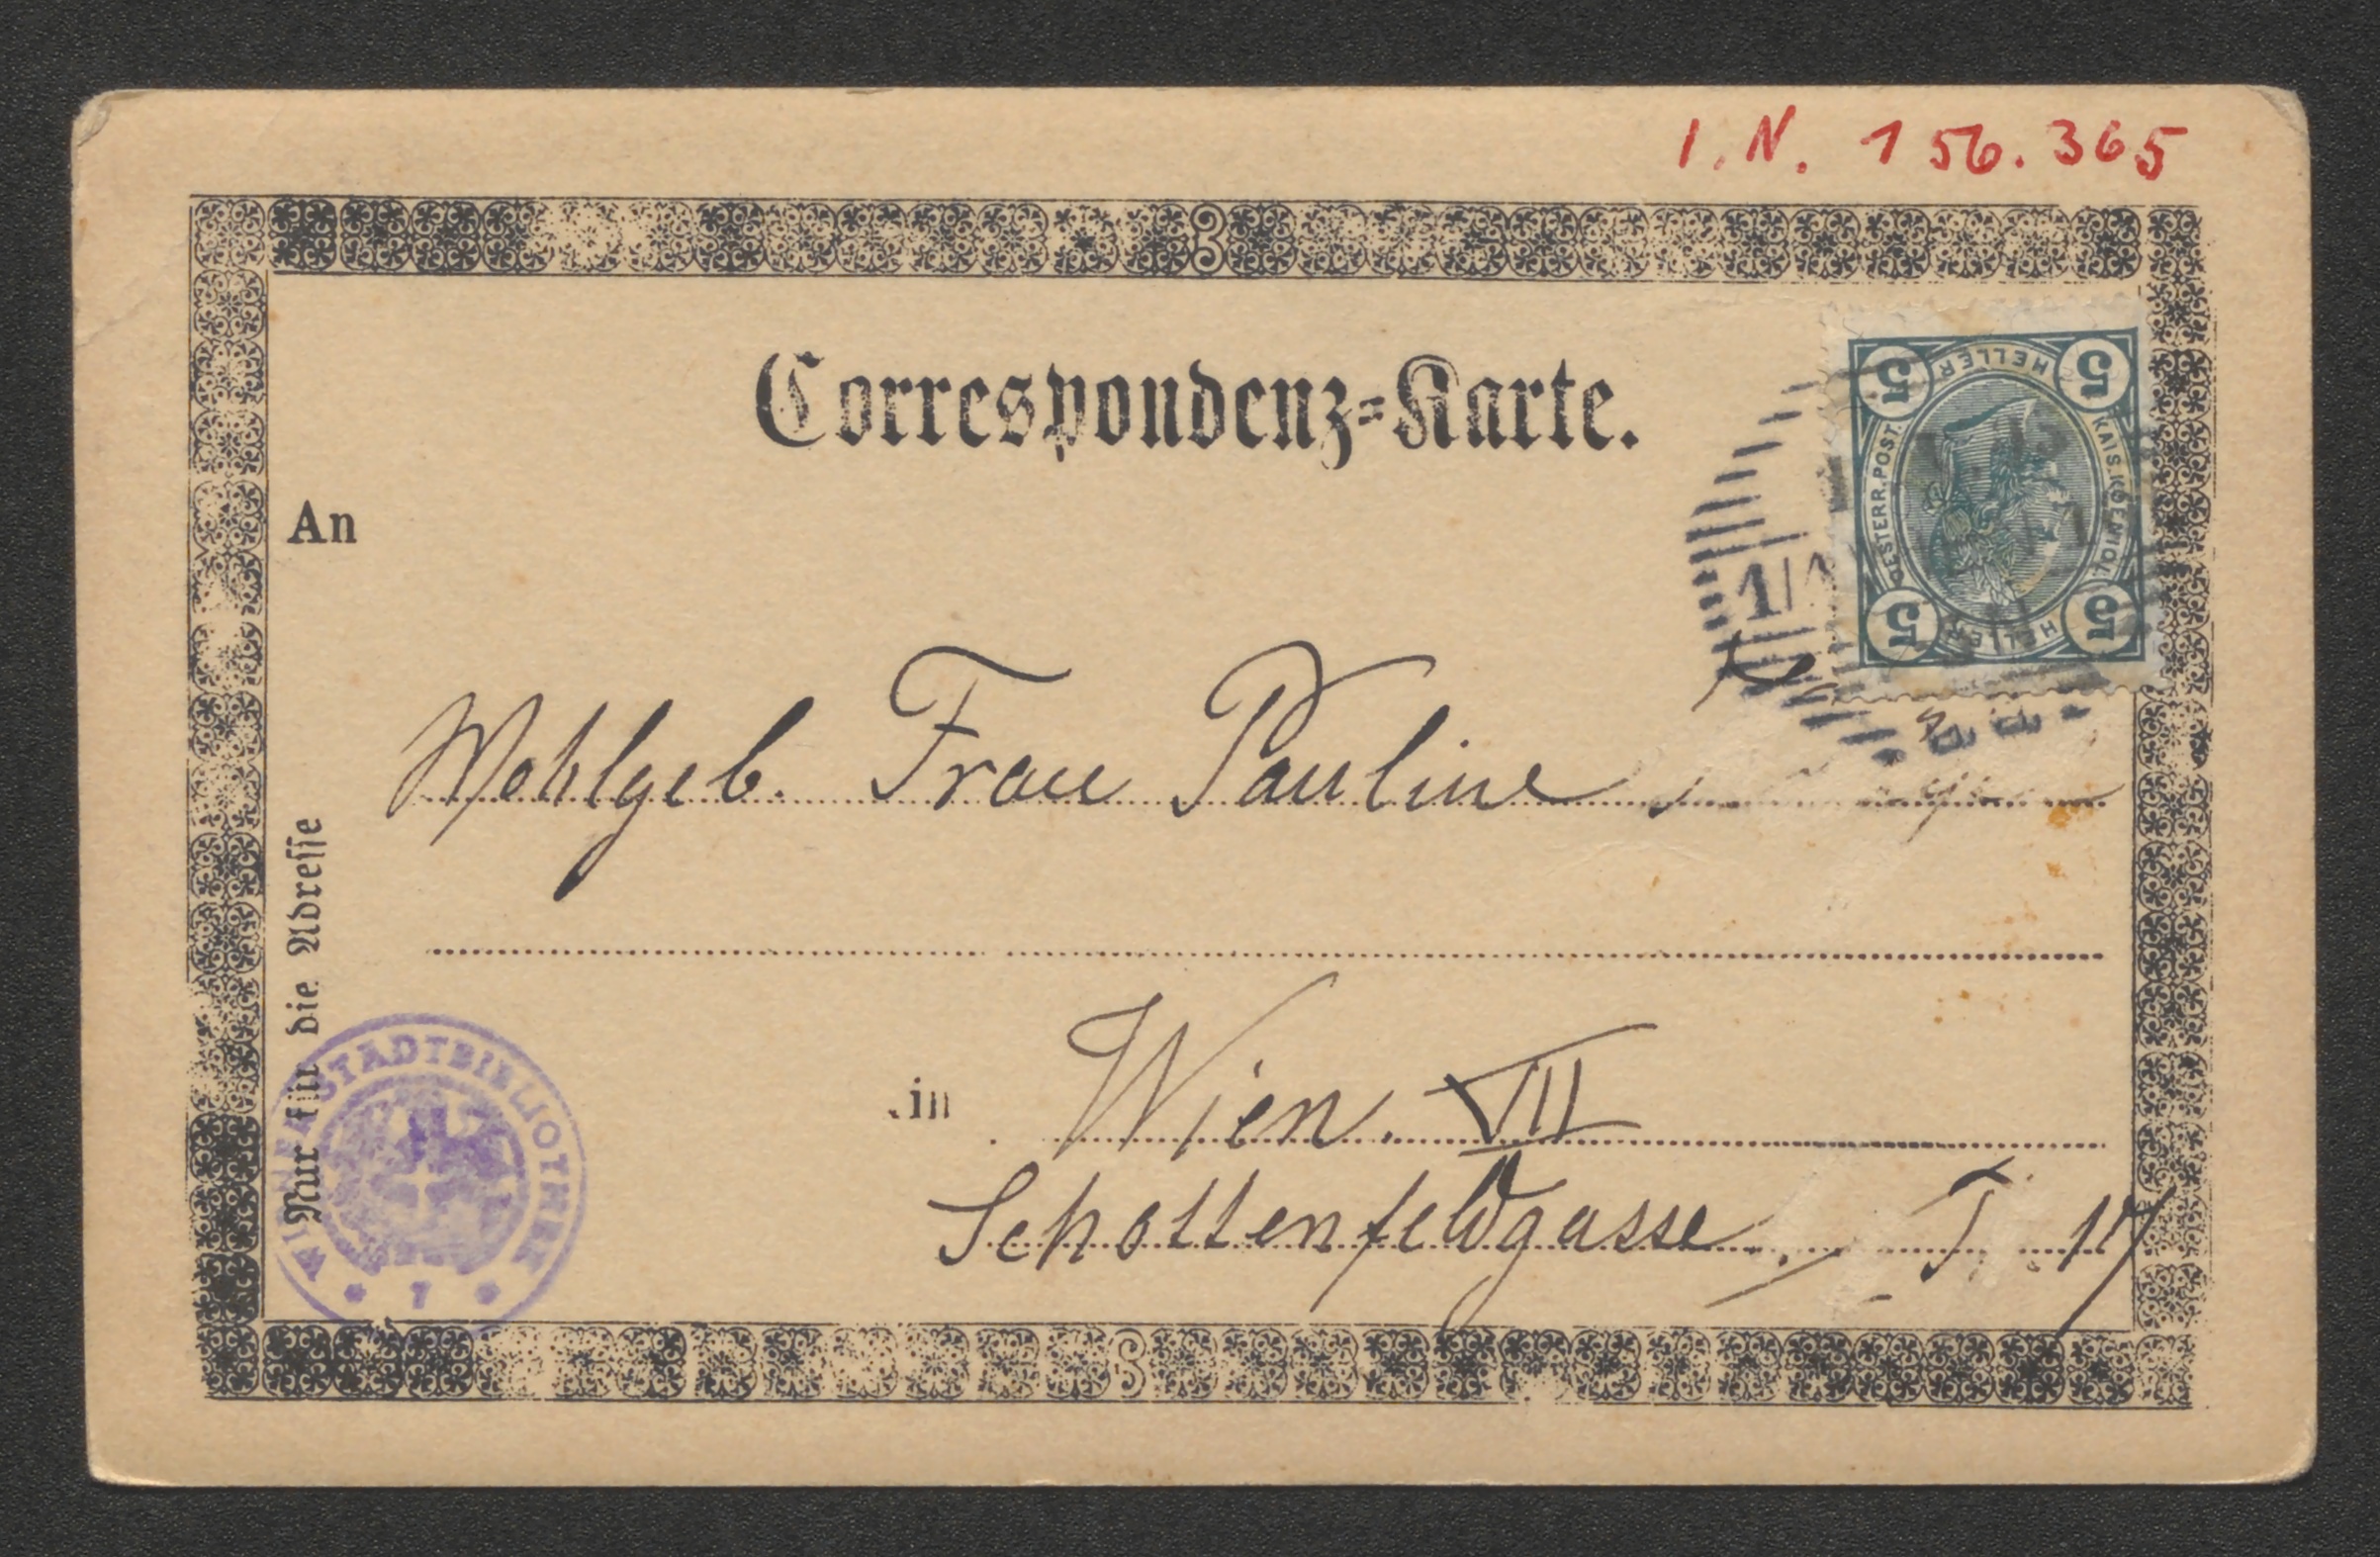 I. N. 156.365
Correspondenz-Karte.
5 HELLER 5
OESTERR. POST. KAIS. KOENIGL.
5 HELLER 5
An
Wohlgeb. Frau Pauline
Nur für die Adresse
in Wien. VII
Schottenfeldgasse
WIENER STADTBIBLIOTHEK
* 7 *